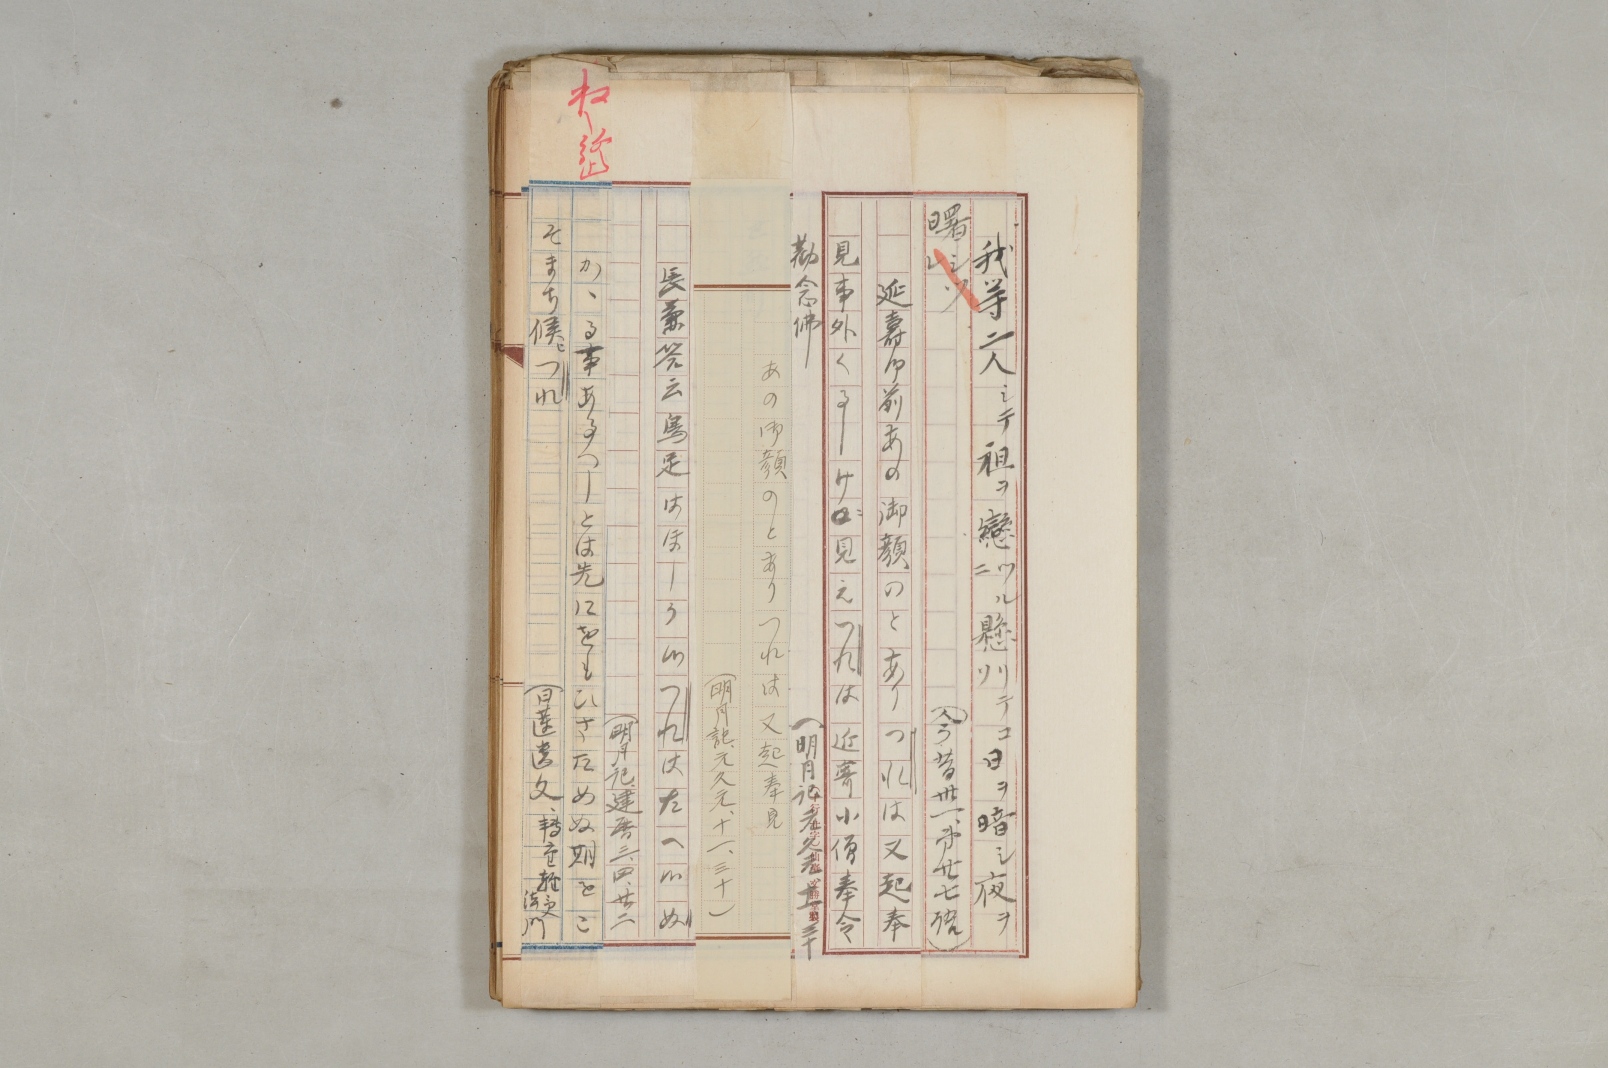 我等二人シテ祖ヲ戀ツル懸リテコ日ヲ暗シ夜ヲ
曙シツ
(今昔卅一、第廿七語)
延壽御前あの御顔のとありつれは又起奉
見事外くるしけ見えつれは近寄小僧奉令
勸念佛
(明月記元久元十一三十
あの御顔のとありつれは又起奉見
(明月記、元久元、十一、三十)
長兼答云馬足はほしうつれはたへぬ
(明月記、建暦三、四、廿二
かゝる事あるへしとは先にをもひさためぬ期をこ
そまち候つれ
(日蓮遺文、轉重輕受法門